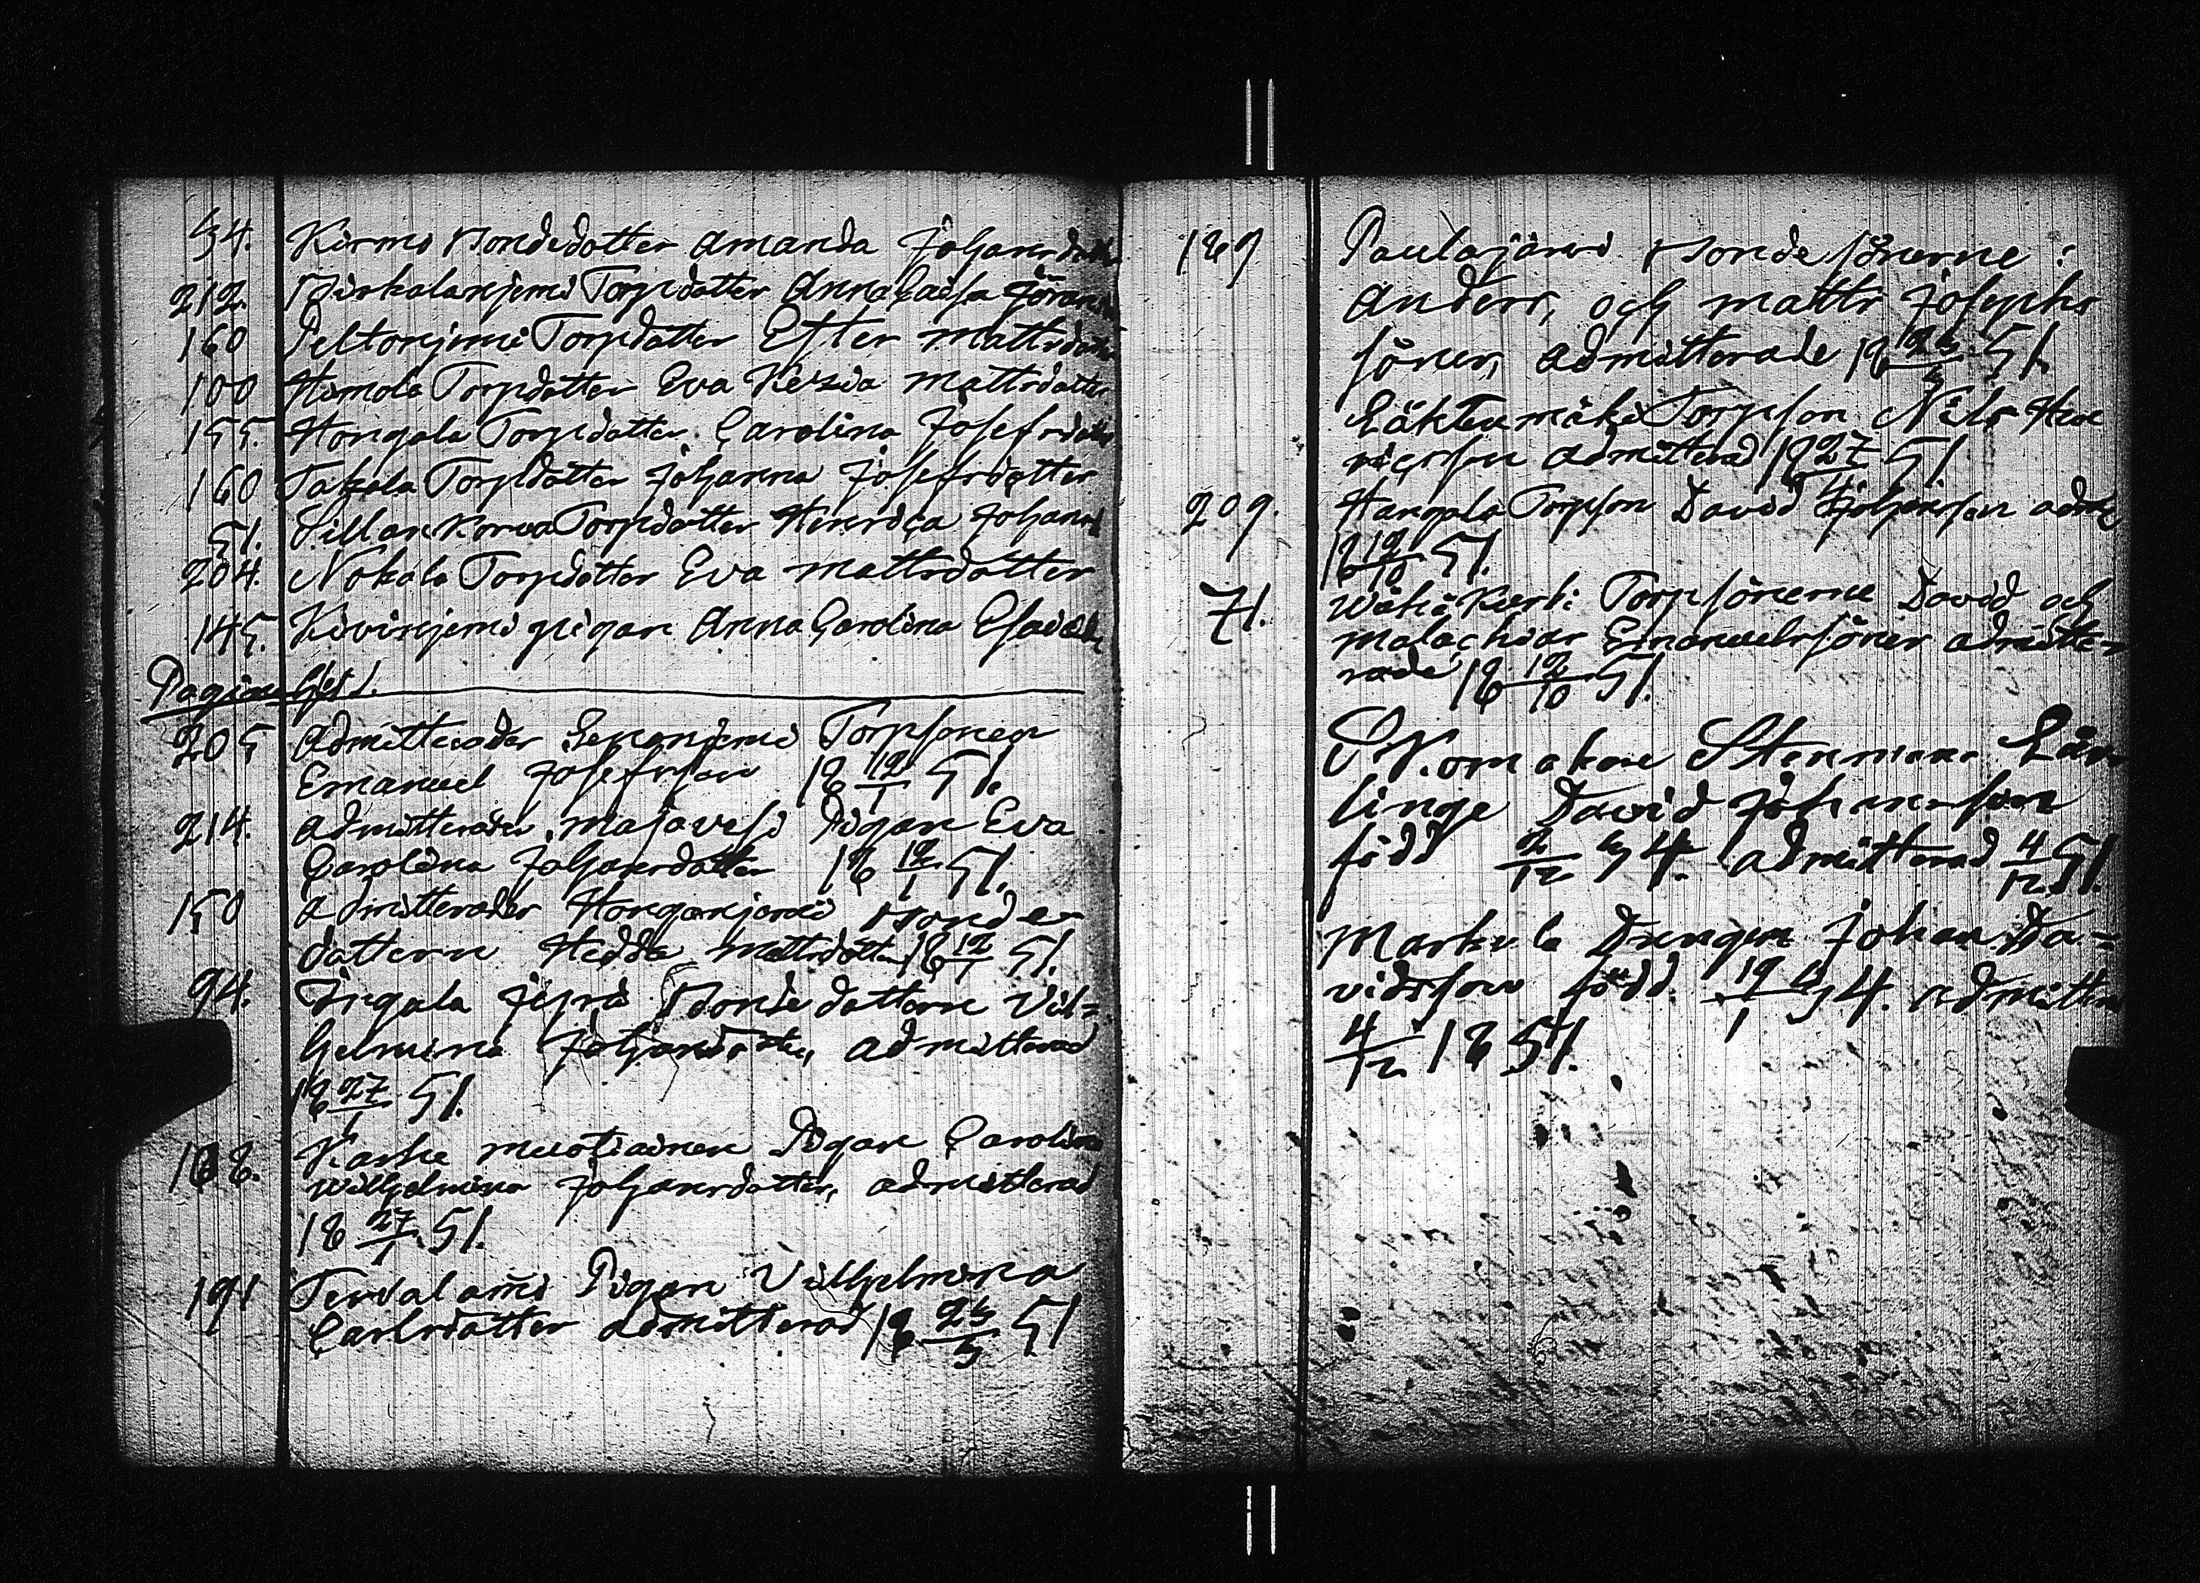 34. Kirmo Bondedotter Amanda Johansdotter
212. Pirkalaniemi Torpdotter Anna Caisa Görans
160 Peltoniemi Torpdotter Ester Mattsdotter
100 Himola Torpdotter Eva Kezia Mattsdotter
155. Hongala Torpdotter Carolina Josefsdotter
160 Takala Torpdotter Johanna Josefsdotter
51. Sillankorva Torpdotter Henrica Johans
204. Nokola Torpdotter Eva Mattsdotter
145. Kiviniemi pigan Anna Carolina Esaid
Pagina
205 Admitterades Torpsonen
Emanuel Josefsson 18 12/1 51.
214. admitterades Majavesi Pigan Eva
Carolina Johansdotter 18 12/1 51.
150 admitterades Honganjemi Bonde
dottern Hedda Mattsdotter 18 12/1 51.
94. Ingala Jeprä Bondedottern Vil=
helmina Johansdotter, admitterad
18 27/1 51.
188. Karhe Muotiainen Pigan Carolina
Wilhelmina Johansdotter, admitterad
18 27/1 51.
191 Tervalami Pigan Vilhelmina
Carlsdotter admitterad 18 23/3 51
189 Paulajärvi Bondesönerne:
Anders, och Matts Josephs
söner, admitterade 18 23/3 51.
Läktenmäki Torpson Nils Hen
ricsson admitterad 18 27/4 51
209. Hangala Torpson David Johansson adm
18 12/10 51.
71. Wähäkurki Torpsönerne David och
Malachias Emanuelssöner admitte=
rade 18 12/10 51.
Skomakare Stenmans Lär
linge David Johansson
född 2/12 34. admitterad 4/12 51.
Markula Drengen Johan Da=
vidsson född 19/1 34. admitter
4/12 1851.